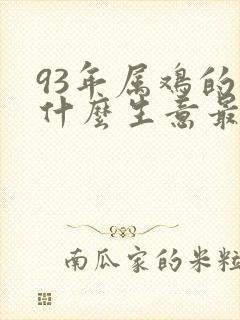 93年属鸡的
什麼生意最
南瓜家的米粒